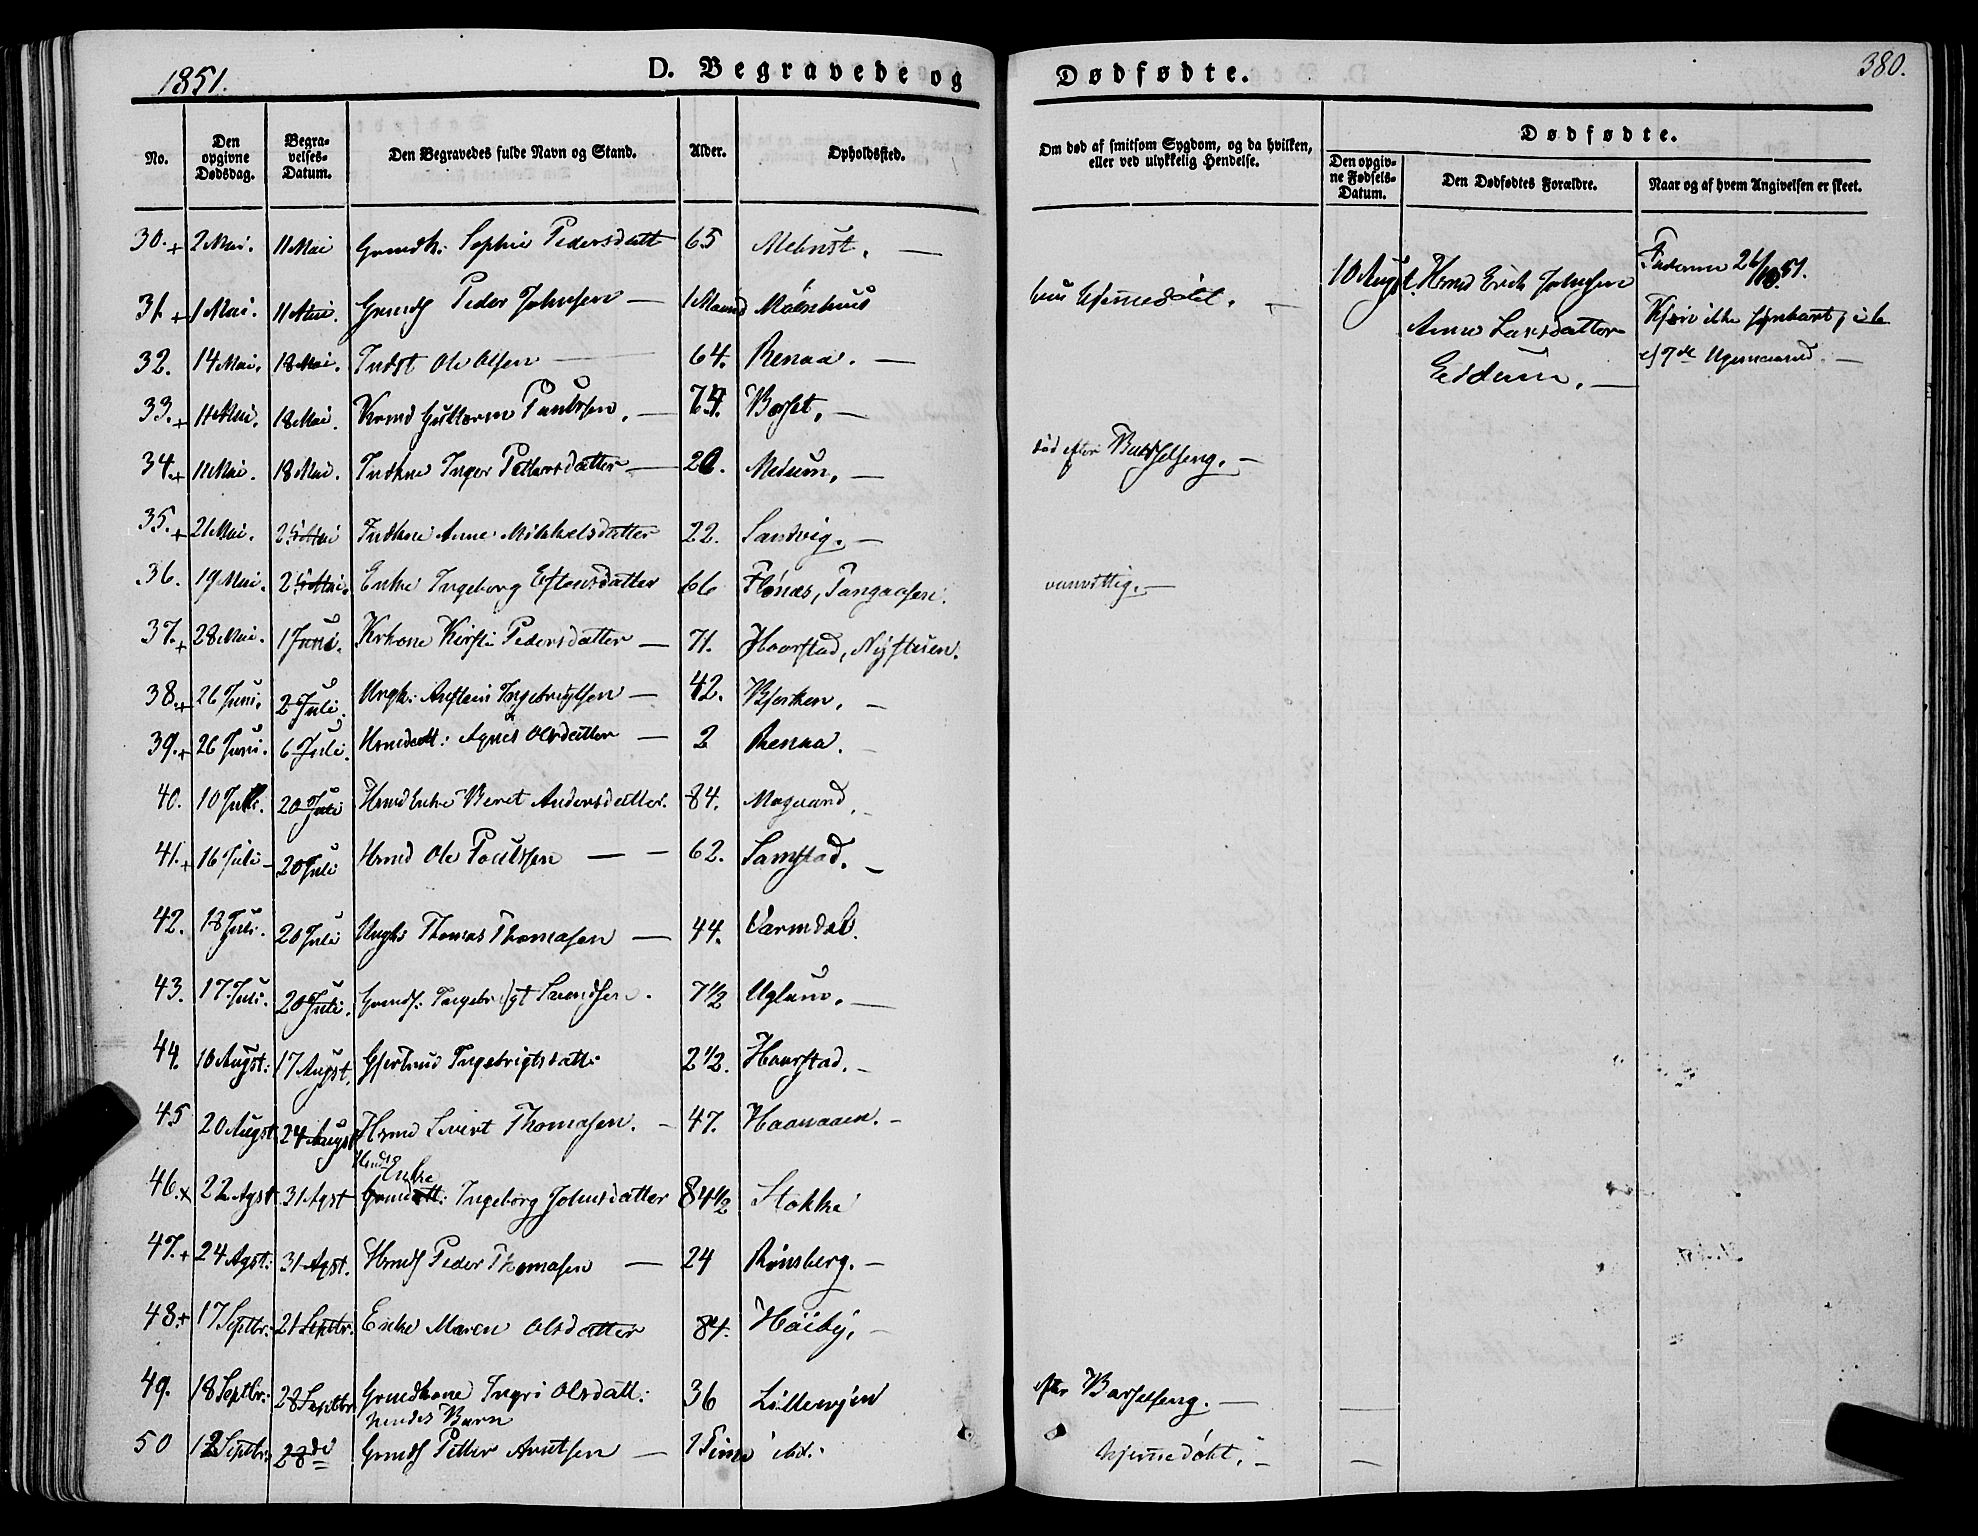 1851.
D. Begravede og
Dødfødte.
380.
No.
Den opgivne Dødsdag.
Begravelses-Datum.
Den Begravedes fulde Navn og Stand.
Alder.
Opholdssted.
Om død af smitsom Sygdom, og da hvilken, eller ved ulykkelig Hendelse.
Dødfødte.
Den opgivne Fødsels-Datum.
Den Dødfødtes Forældre.
Naar og af hvem Angivelsen er skeet.
30. + 2 Mai. 11 Mai Grmdk: Sophie Pedersdatt 65 —
31. + 1 Mai. 11 Mai. Grmds Peder Johnsen — 1 Maaned Moenshuus hjemmedøbt. —
32. 14 Mai. 18 Mai. Indst Ole Olsen — 64. Renaa. —
33. + 11 Mai. 18 Mai. Guttorm Paulssen. — 74. Borset. —
34. + 11 Mai. 18 Mai. Indkone Inger Pettersdatter — Melum. — død efter Barselseng. —
35. + 21 Mai. 25 Mai Indkone Anne Mikkelsdatter 22. Sandvig. —
36. 19 Mai. 25 Mai. Enke Ingeborg Estensdatter 66 Flönæs, Tangaasen. vanvittig. —
37. + 28 Mai. 1 Juni. Kirsti Pedersdatter — 71. Haarstad, Nystuen.
38. + 26 Juni. 2 Juli. Ungk: Ingebrigtsen — 42. Bjerken. —
39. + 26 Juni. 6 Juli. Agnes Olsdatter — 2 Renaa.
40. 10 Juli. 20 Juli Hmd Enke Beret Andersdatter. 84. Mogaard.
41. + 16 Juli — 20 Juli Hmd Ole Poulssen — — 62. Samstad. —
42. 18 Juli. 20 Juli Ungks Thomas Thomasen — 44. Varmdal.
43. 17 Juli. 20 Juli. Grmds: Ingebrigt 7 1/2 Uglum. —
44. 10 Augst: 17 Augst. Gjertrud Ingebrigtsdatt: 2 1/2. Haarstad. —
45 20 Augst 24 Augst Hmd Sivert Thomasen. — 47. —
Enke
46. x 22 Agst 31 Agst Ingeborg Johnsdatter 84 1/2 Stokke
47. + 24 Agst: 31 Agst. Hmds Peder Thomasen — 24 Rönsberg. —
48. + 17 Septbr: 21 Septbr. Enke Maren Olsdatter 84. Höiby. —
49. 18 Septbr: 28 Septbr Grmdkone Ingri Olsdatt: 36 efter Barselseng. —
hendes Barn
50 12 Septbr: 28 de Grmds Petter Arntsen — 1 Time ibd: hjemmedøbt. —
10 Augst. Hmd Erik Johnsen
Anne Larsdatter
—
Faderen 26/10 51.